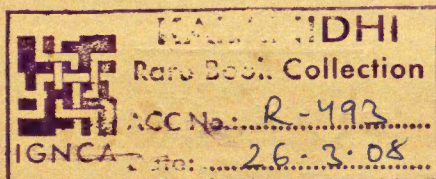 KALANIDHI
Rare Book Collection
ACC No.: R-493
IGNCA Date: 26-3-08